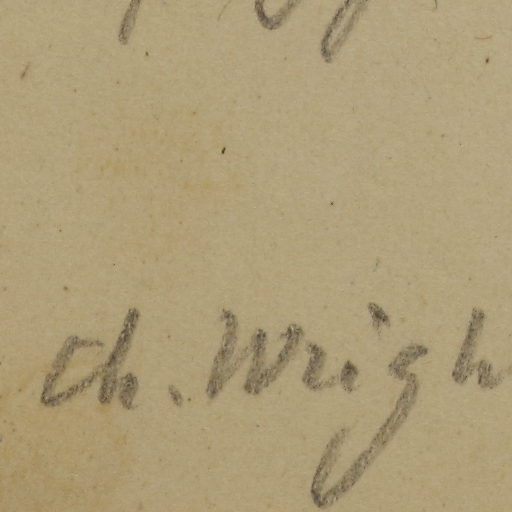 Ch. Wrigh